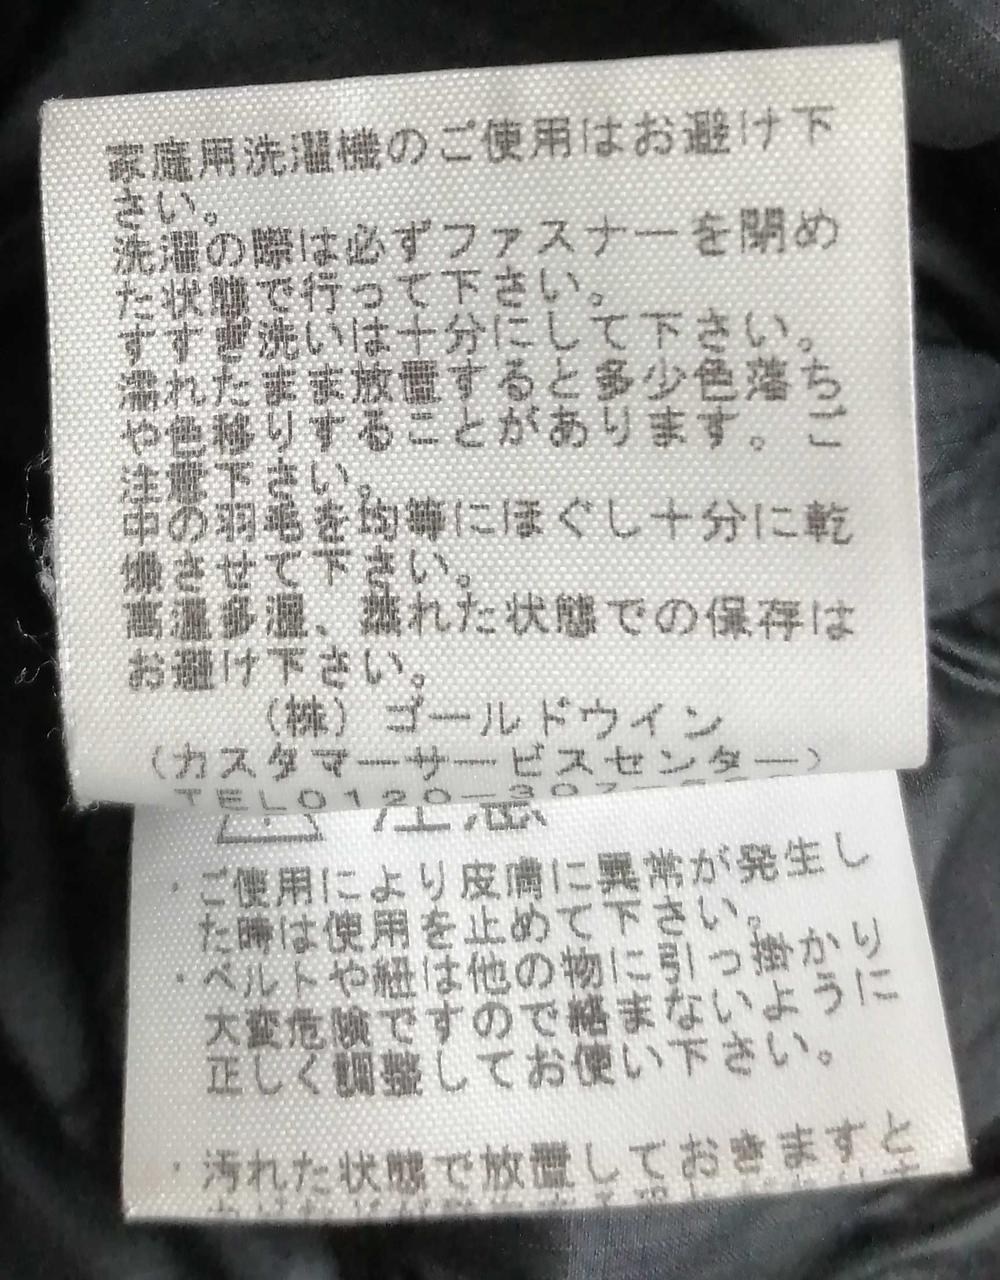 家庭用洗濯機のご使用はお避け下
さい。
洗濯の際は必ずファスナーを閉め
た状態で行って下さい。
すすぎ洗いは十分にして下さい。
濡れたまま放置すると多少色落ち
や色移りすることがあります。ご
注意下さい。
中の羽毛を均等にほぐし十分に乾
燥させて下さい。
高温多湿、蒸れた状態での保存は
お避け下さい。
(株) ゴールドウイン
(カスタマーサービスセンター)
TEL0120-307-
注意
・ご使用により皮膚に異常が発生し
た時は使用を止めて下さい。
・ベルトや紐は他の物に引っ掛かり
大変危険ですので絡まないように
正しく調整してお使い下さい。
・汚れた状態で放置しておきますと